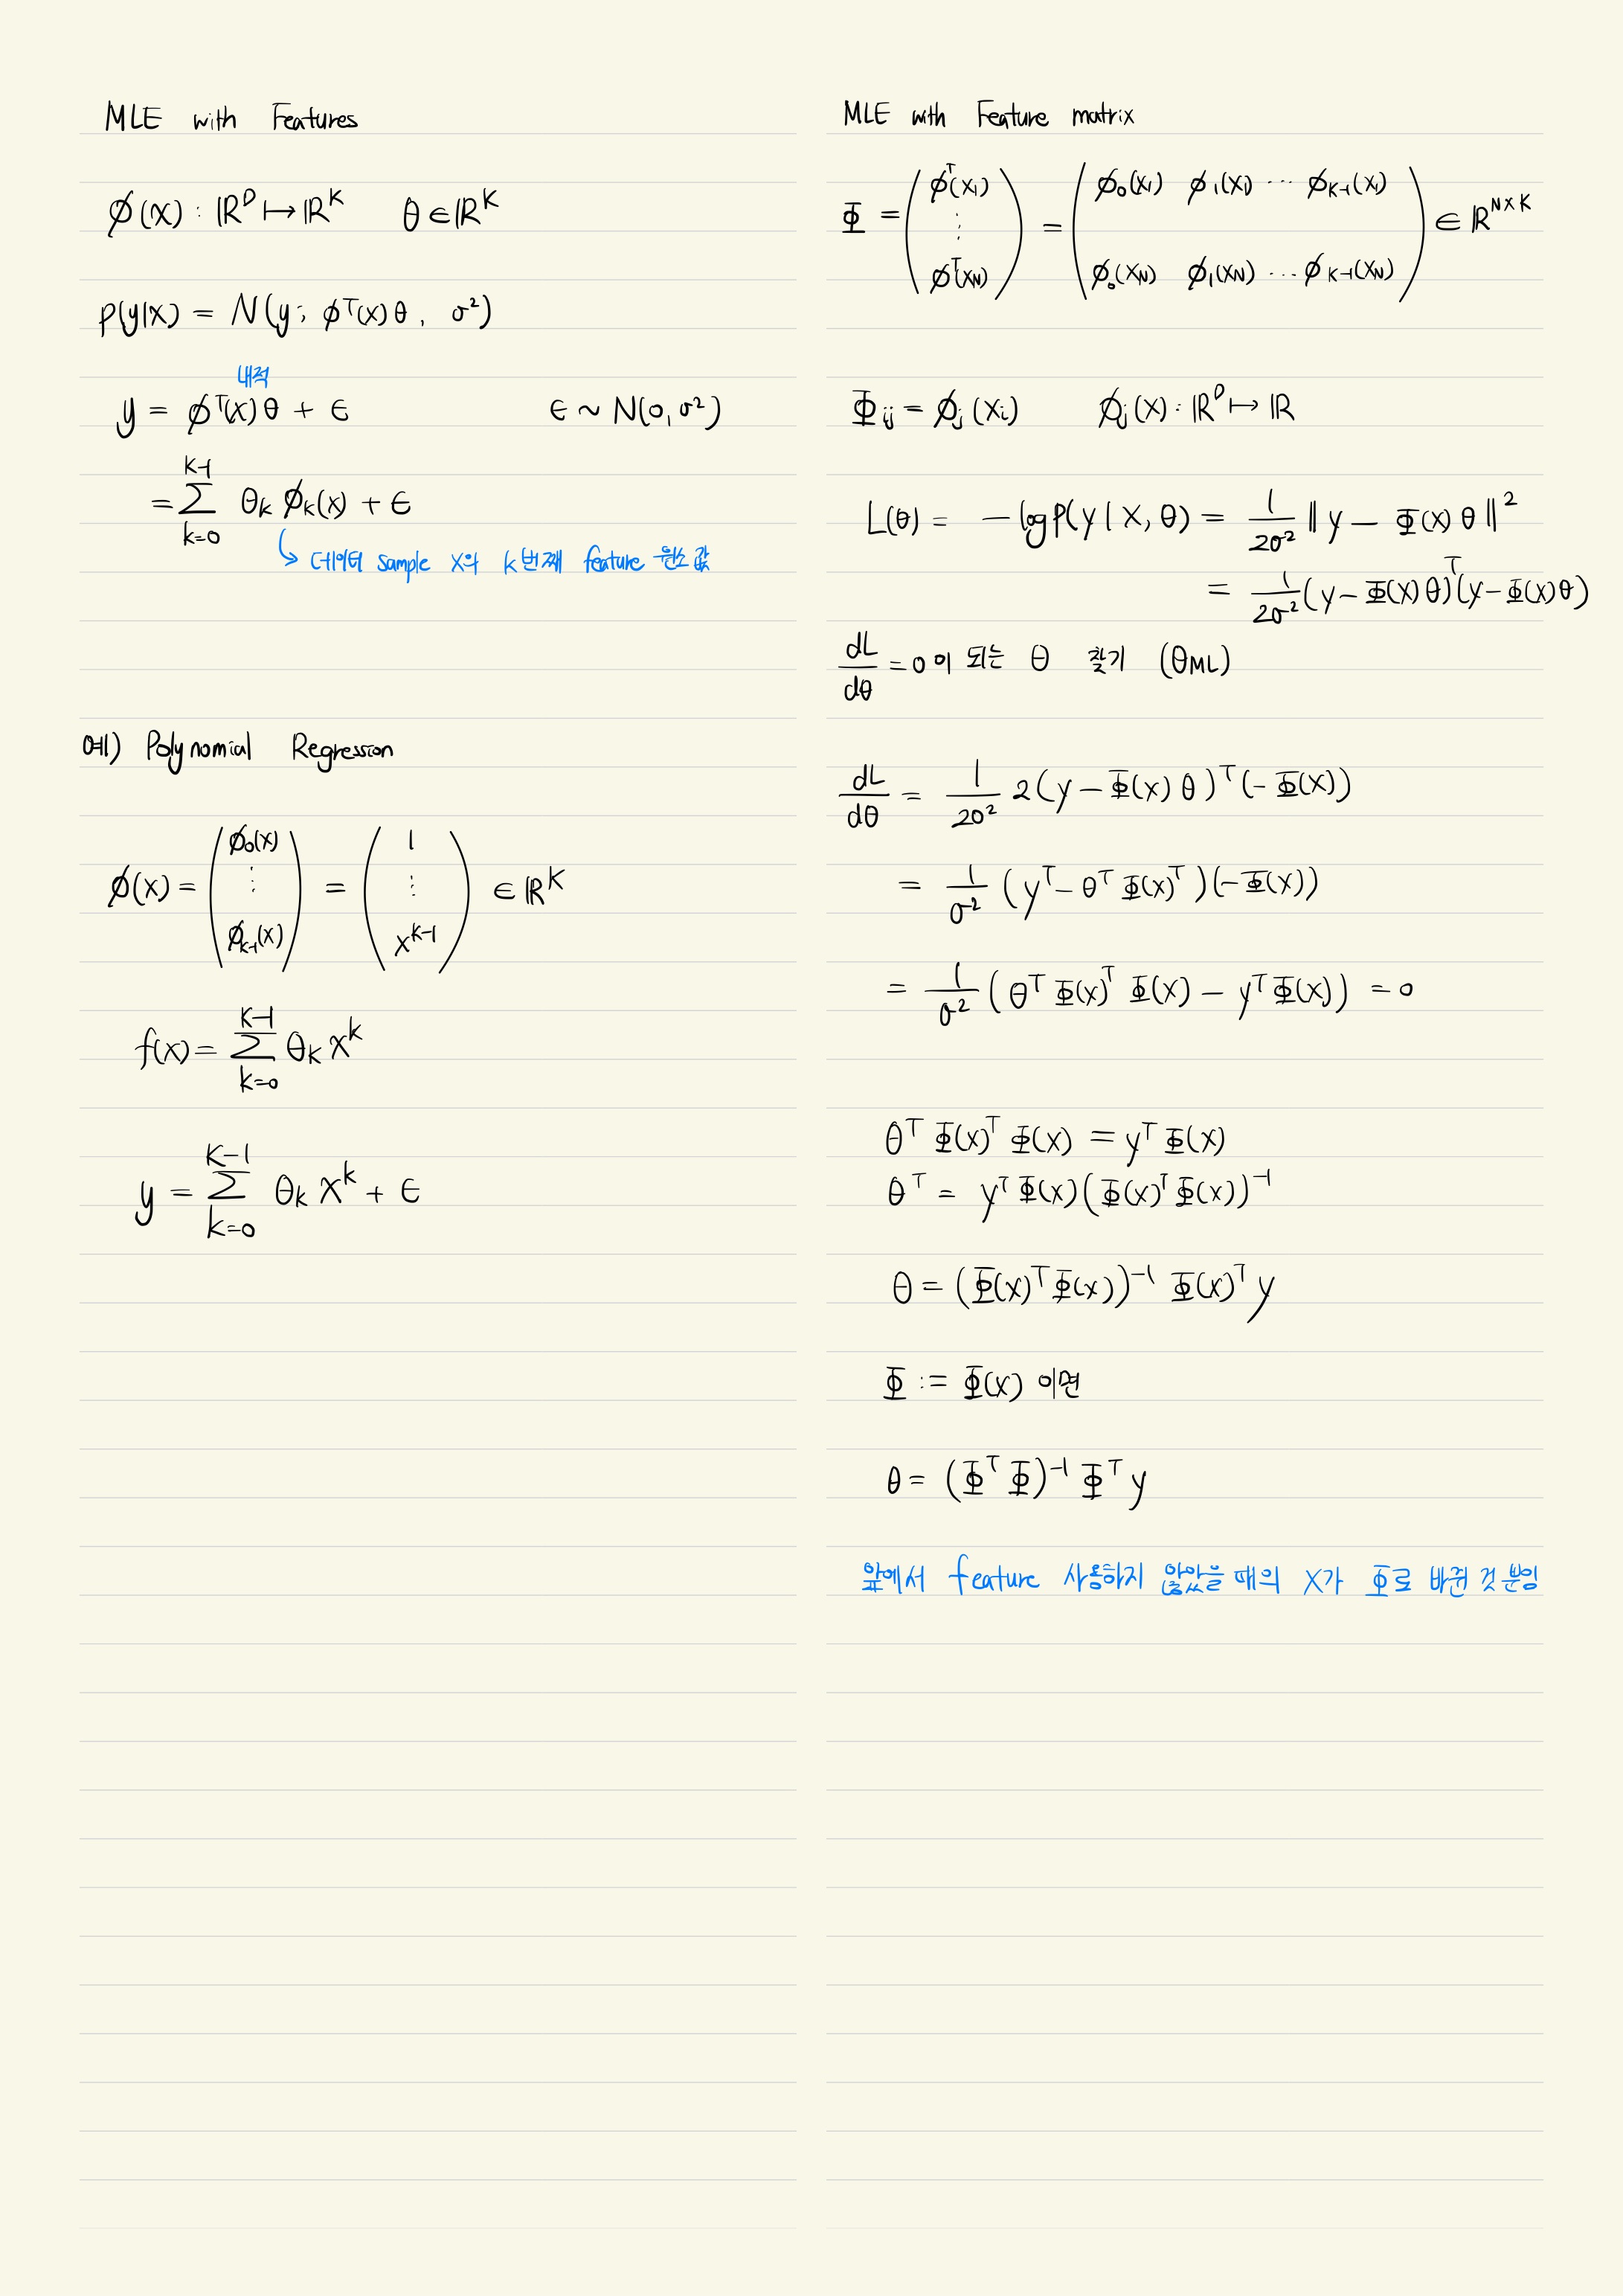 MLE with Features
ϕ(x) : ℝᴰ ↦ ℝᴷ θ ∈ ℝᴷ
p(y|x) = N(y; ϕᵀ(x)θ, σ²)
내적
y = ϕᵀ(x)θ + ϵ ϵ ~ N(0, σ²)
= ∑_{k=0}^{K-1} θ_k ϕ_k(x) + ϵ
↳ 데이터 sample x의 k번째 feature 원소 값
예) Polynomial Regression
ϕ(x) = (ϕ₀(x) ⋮ ϕ_{K-1}(x)) = (1 ⋮ x^{K-1}) ∈ ℝᴷ
f(x) = ∑_{k=0}^{K-1} θ_k x^k
y = ∑_{k=0}^{K-1} θ_k x^k + ϵ
MLE with Feature matrix
Φ = (ϕᵀ(x₁) ⋮ ϕᵀ(x_N)) = (ϕ₀(x₁) ϕ₁(x₁) ⋯ ϕ_{K-1}(x₁) ϕ₀(x_N) ϕ₁(x_N) ⋯ ϕ_{K-1}(x_N)) ∈ ℝ^{N×K}
Φ_{ij} = ϕ_j(x_i) ϕ_j(x) : ℝᴰ ↦ ℝ
L(θ) = -log p(y | X, θ) = 1/2σ² ‖y - Φ(x)θ‖²
= 1/2σ² (y - Φ(x)θ)ᵀ(y - Φ(x)θ)
dL/dθ = 0 이 되는 θ 찾기 (θ_ML)
dL/dθ = 1/2σ² 2(y - Φ(x)θ)ᵀ(-Φ(x))
= 1/σ² (yᵀ - θᵀΦ(x)ᵀ)(-Φ(x))
= 1/σ² (θᵀΦ(x)ᵀΦ(x) - yᵀΦ(x)) = 0
θᵀΦ(x)ᵀΦ(x) = yᵀΦ(x)
θᵀ = yᵀΦ(x)(Φ(x)ᵀΦ(x))⁻¹
θ = (Φ(x)ᵀΦ(x))⁻¹Φ(x)ᵀy
Φ := Φ(x) 이면
θ = (ΦᵀΦ)⁻¹Φᵀy
앞에서 feature 사용하지 않았을 때의 X가 Φ로 바뀐 것 뿐임